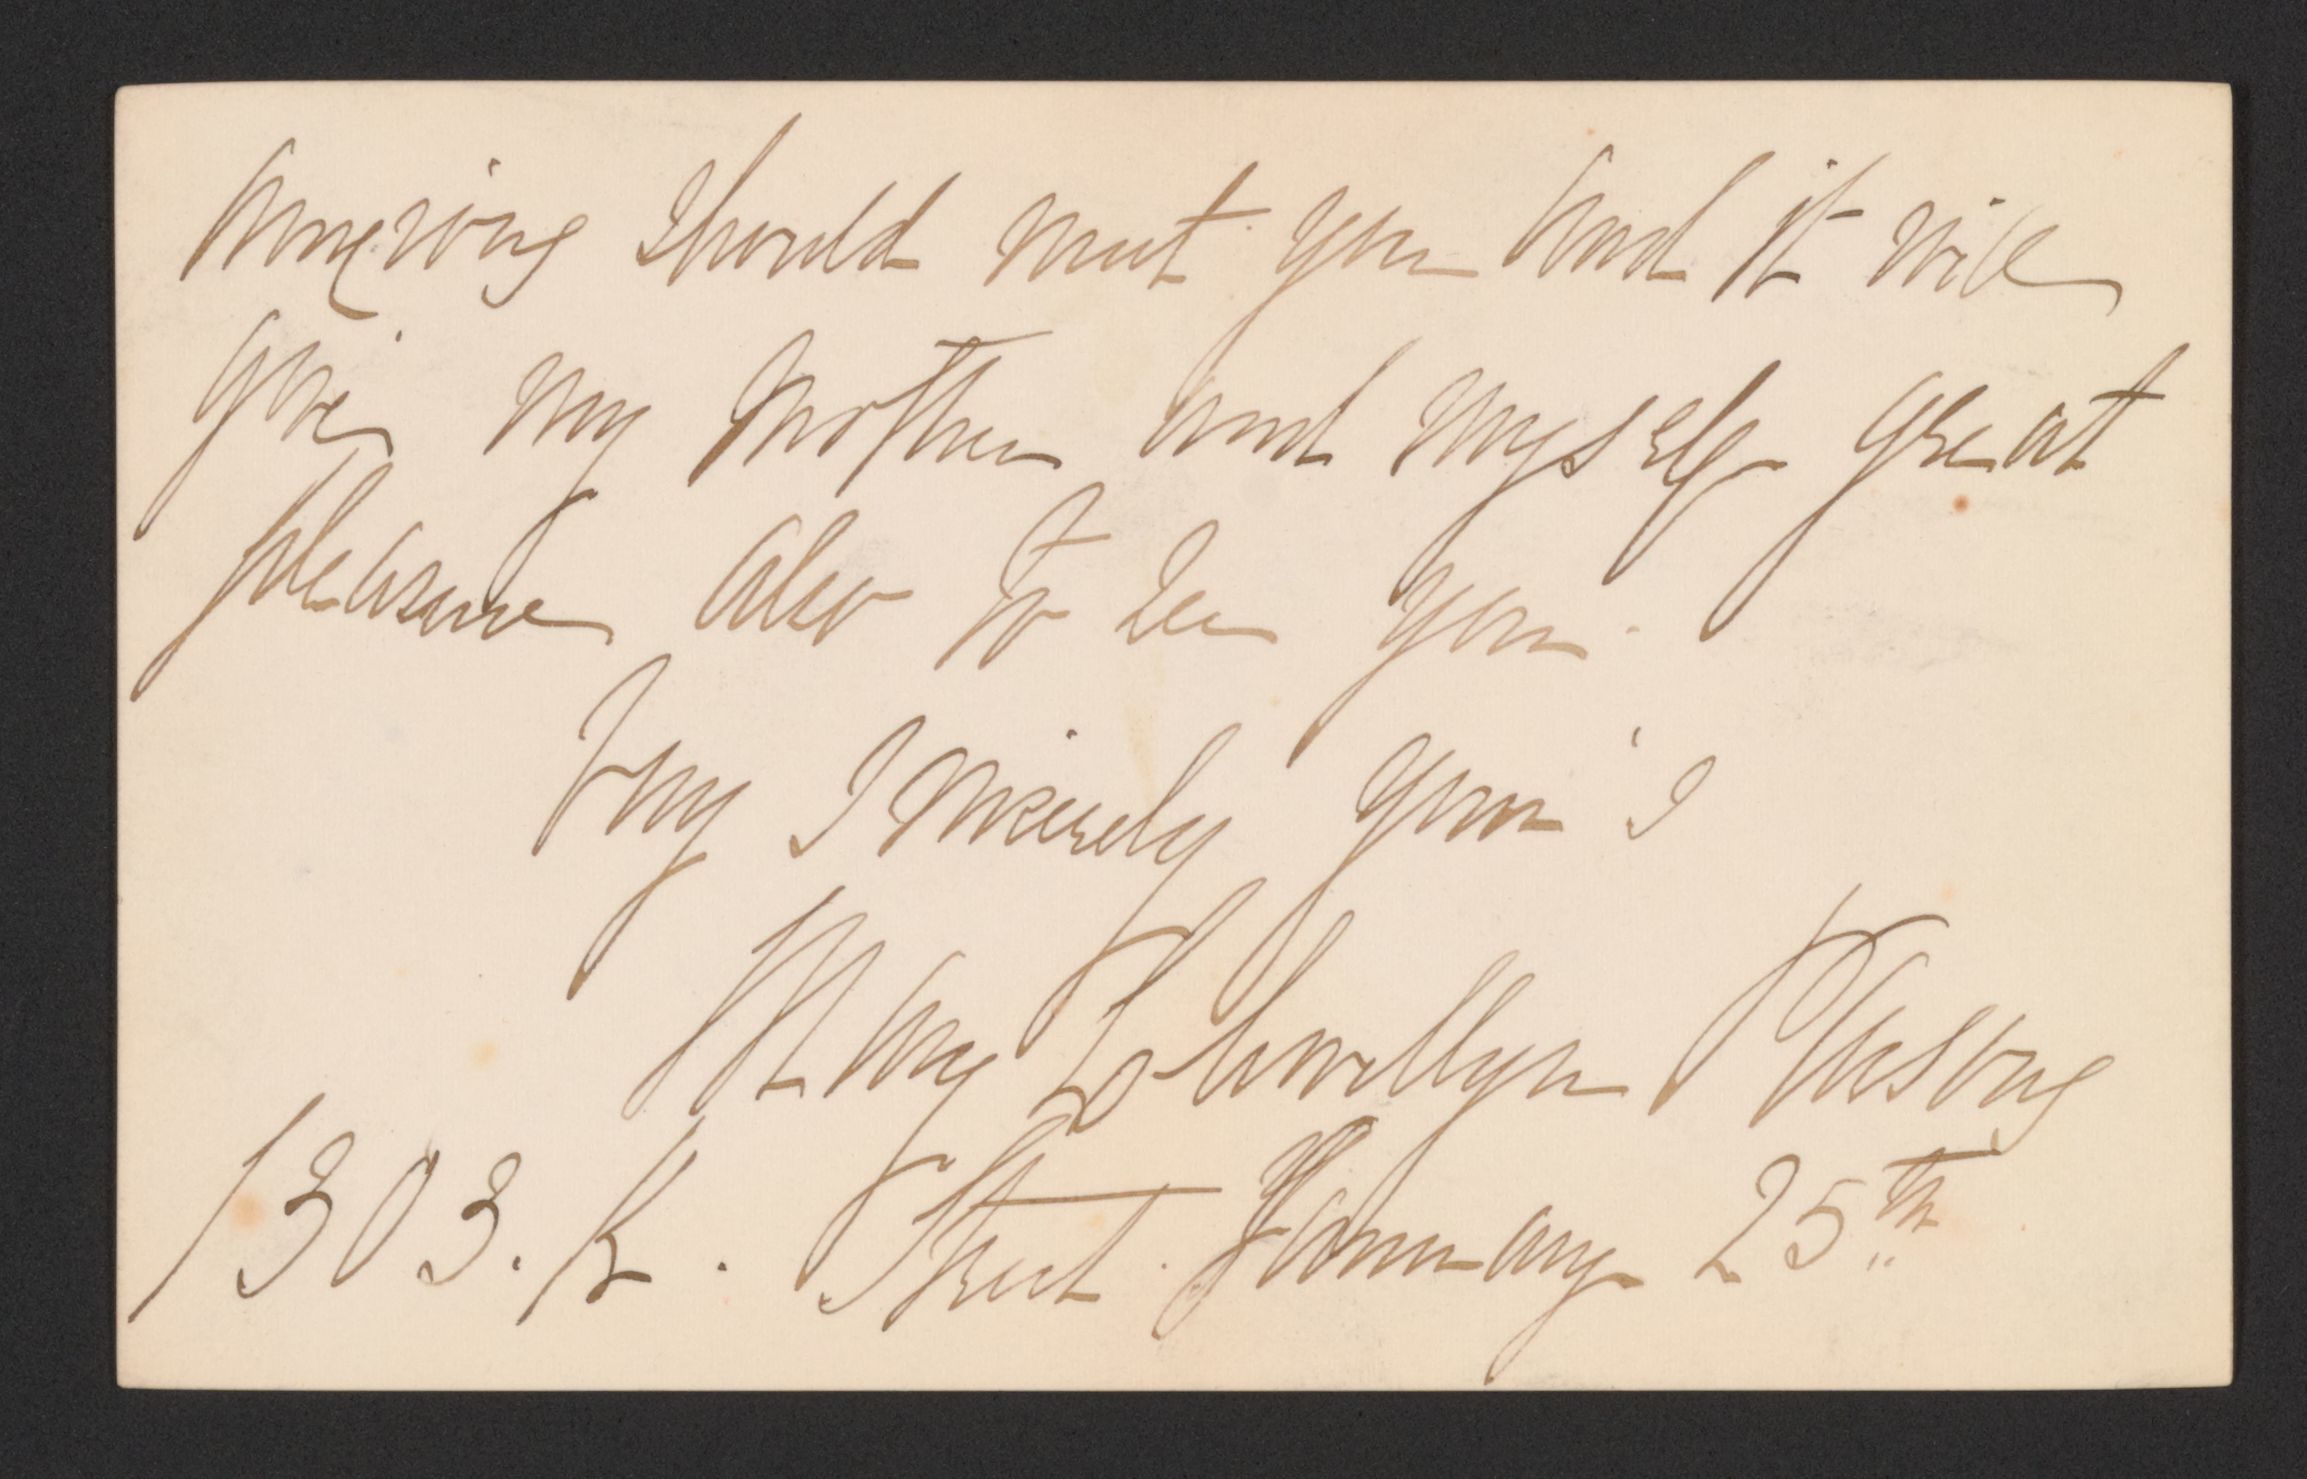 should meet you and it will
give my mother and myself great
pleasure also to see you.
Very Sincerely your's
Mary Llewellyn
1303. K. Street. January 25th